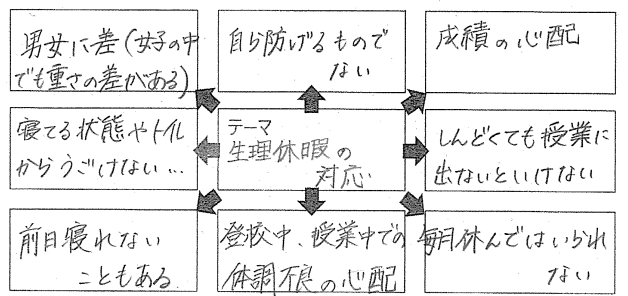 男女に差(女子の中
でも重さの差がある)
自ら防げるもので
ない
成績の心配
寝てる状態やトイレ
からうごけない…
テーマ
生理休暇の
対応
しんどくても授業に
出ないといけない
前日寝れない
こともある
登校中、授業中での
体調不良の心配
毎月休んではいられ
ない